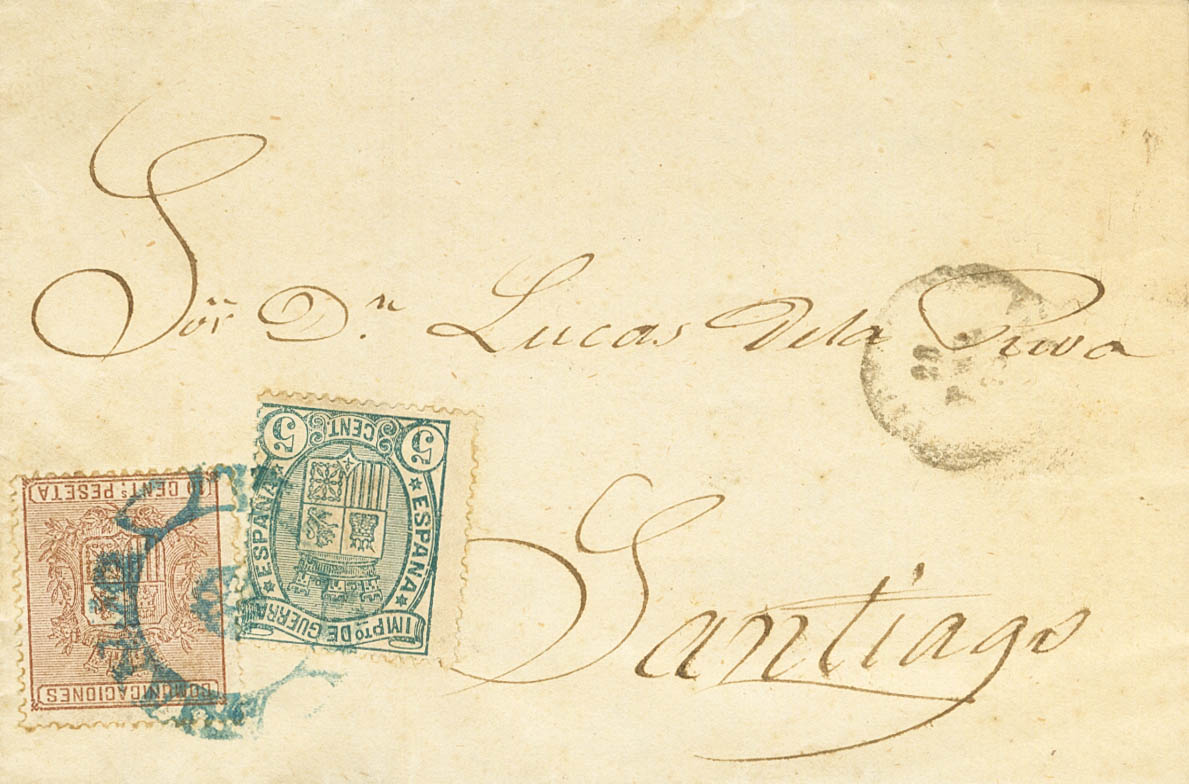 Sör Dn Lucas Dela Riva
5 CENT. 5
ESPAÑA ESPAÑA
IMPTO DE GUERRA
10 CENTS PESETA
COMUNICACIONES
Santiago